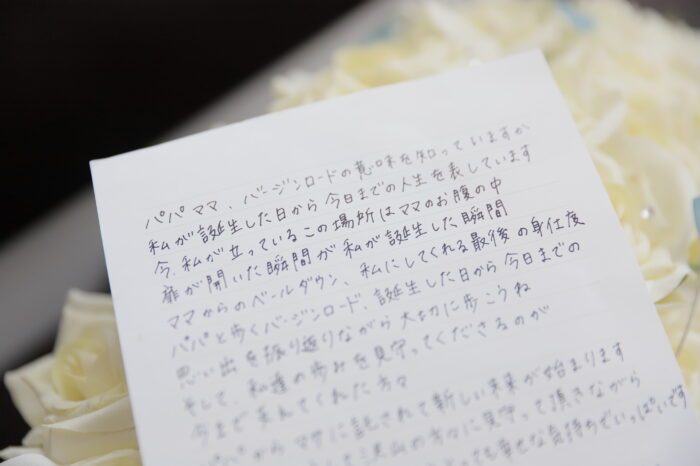 パパ ママ、バージンロードの意味を知っていますか
私が誕生した日から今日までの人生を表しています
今、私が立っているこの場所はママのお腹の中
扉が開いた瞬間が私が誕生した瞬間
ママからのベールダウン、私にしてくれる最後の身仕度
パパと歩くバージンロード、誕生した日から今日までの
思い出を振り返りながら大切に歩こうね
そして、私達の歩みを見守ってくださるのが
今まで支えてくれた方々
パパからマサに託されて新しい未来が始まります
沢山の方々に見守って頂きながら
とっても幸せな気持ちでいっぱいです